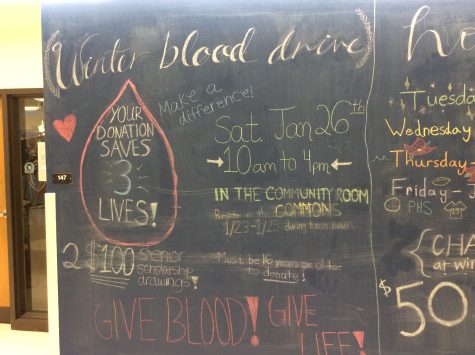 Winter blood drive
Make a
difference!
YOUR
DONATION
SAVES
3
LIVES!
Sat. Jan 26th
10am to 4pm
IN THE COMMUNITY ROOM
COMMONS
1/23-1/25 during lunch hours
Must be 16 years or older
to donate!
2 $100 senior
scholarship
drawings!
GIVE BLOOD! GIVE
LIFE!
147
Tuesd
Wednesday
Thursday
Friday - J
PHS
{CHA
at win
$50